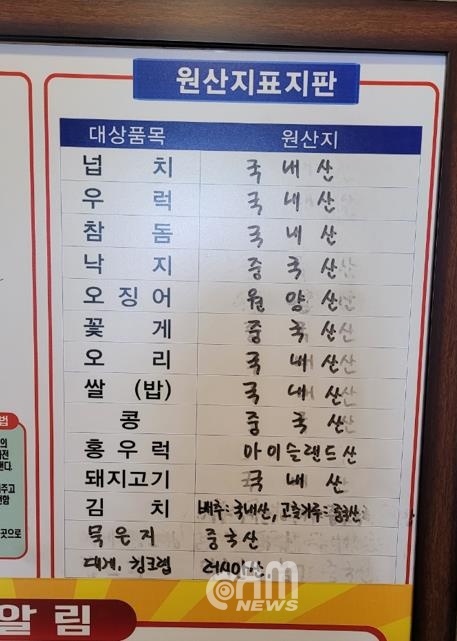 원산지표지판
대상품목 원산지
넙 치 국 내 산
우 럭 국 내 산
참 돔 국 내 산
낙 지 중 국 산
오 징 어 원 양 산
꽃 게 중 국 산
오 리 국 내 산
쌀 (밥) 국 내 산
콩 중 국 산
홍 우 럭 아이슬랜드산
돼지고기 국 내 산
김 치 배추:국내산, 고춧가루:중국산
묵은지 중국산
대게, 킹크랩 러시아산
알 림
CHM
NEWS